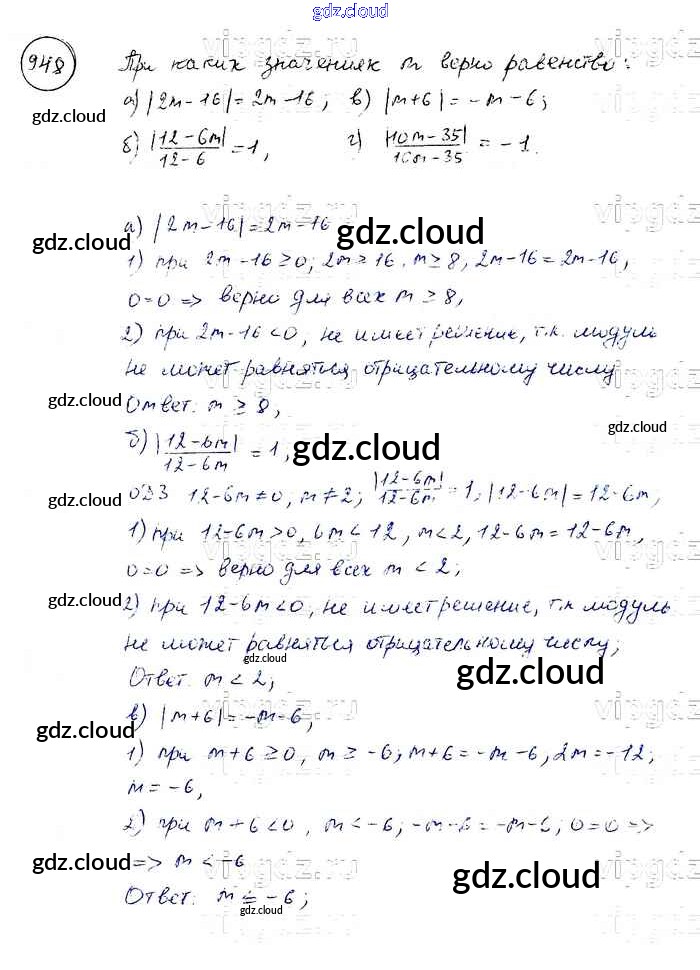 gdz.cloud
948 При каких значениях m верно равенство:
а) |2m-16|=2m-16; в) |m+6|=-m-6;
gdz.cloud
б) |12-6m|/12-6=1, г) |10m-35|/10m-35=-1.
vipgdz.ru
а) |2m-16|=2m-16
gdz.cloud gdz.cloud
1) при 2m-16≥0; 2m≥16. m≥8, 2m-16=2m-16,
0=0 => верно для всех m≥8,
2) при 2m-16<0, не имеет решение, т.к. модуль
не может равняться отрицательному числу
gdz.cloud
Ответ: m≥8,
gdz.cloud
б) |12-6m|/12-6m=1,
gdz.cloud
gdz.cloud
ОДЗ 12-6m≠0, m≠2; |12-6m|/12-6m=1, |12-6m|=12-6m,
1) при 12-6m>0, 6m<12, m<2, 12-6m=12-6m,
0=0 => верно для всех m<2;
gdz.cloud
2) при 12-6m<0, не имеет решение, т.к модуль
не может равняться отрицательному числу;
gdz.cloud
Ответ. m<2;
gdz.cloud
в) |m+6|=-m-6,
gdz.cloud
1) при m+6≥0, m≥-6; m+6=-m-6, 2m=-12;
m=-6,
2) при m+6<0, m<-6; -m-6=-m-6; 0=0 =>
gdz.cloud
=> m<-6
gdz.cloud
Ответ: m≤-6;
gdz.cloud